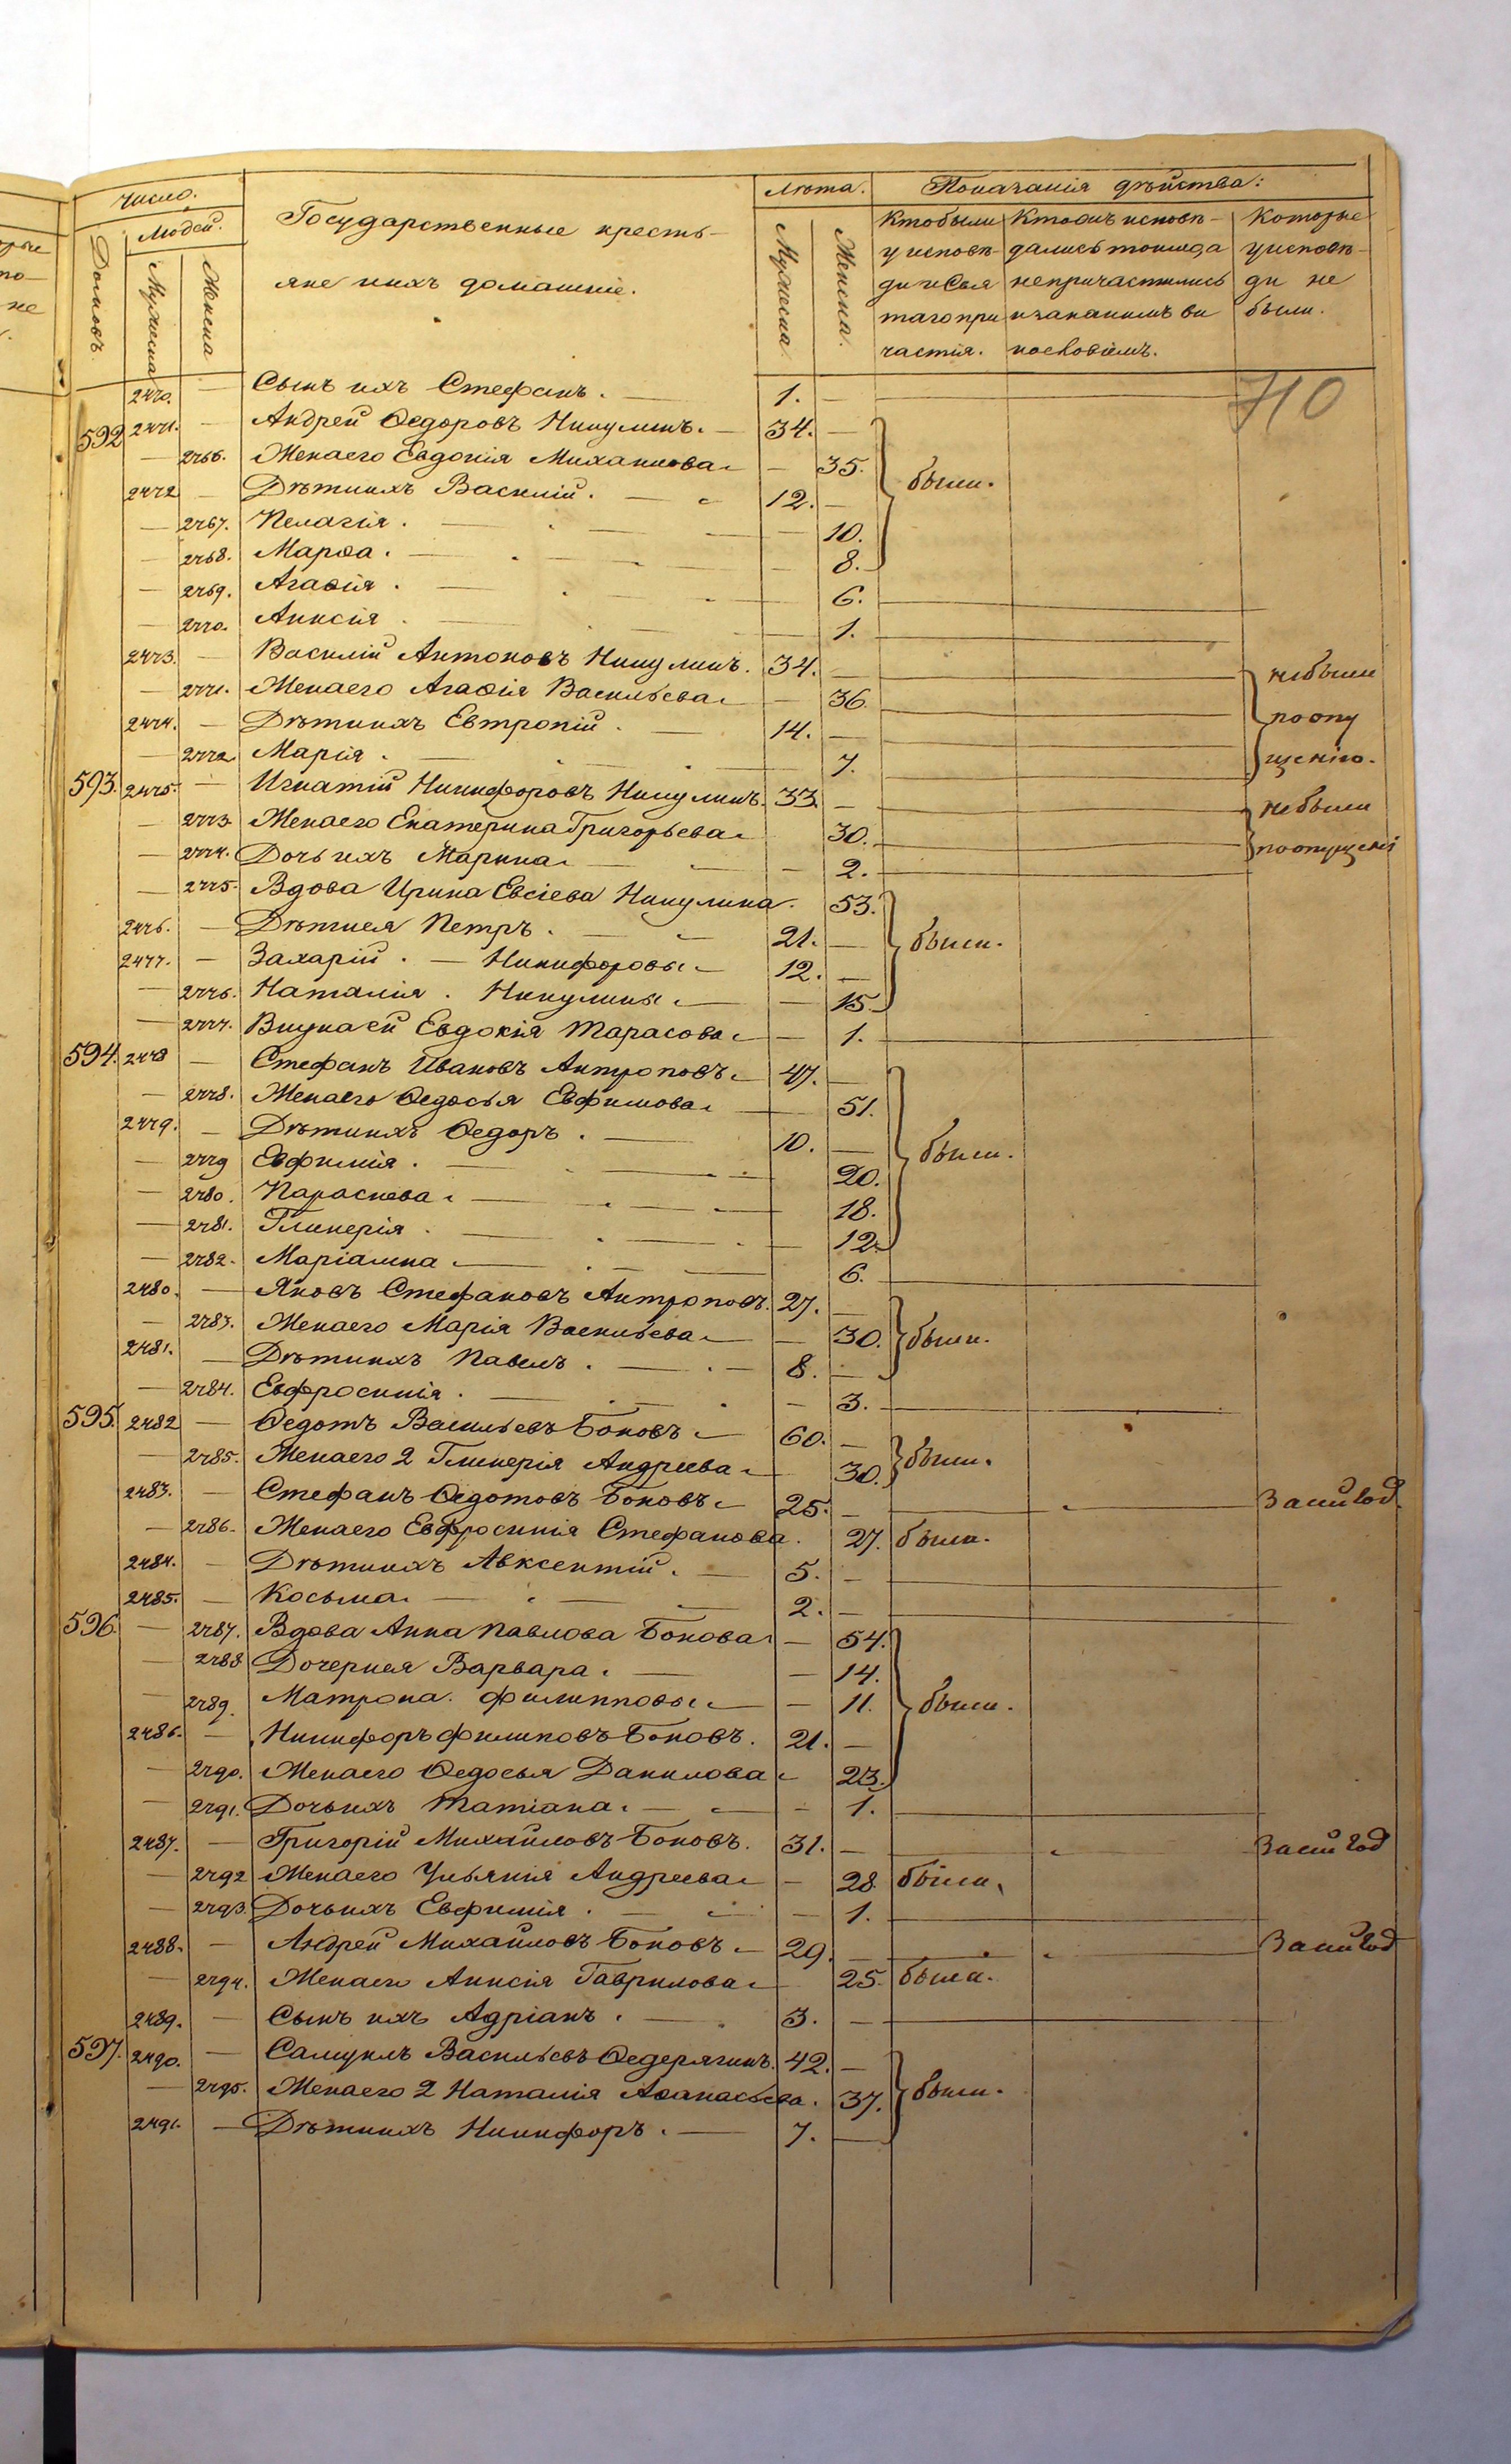 Число.
Людей.
Домовъ
Мужеска
Женска
Государственные кресть-
яне иихъ домашніе.
Лѣта.
Мужеска.
Женска.
Показанія дѣйства:
Кто были
у исповѣ-
ди и Свя
таго при
частія.
Кто онъ исповѣ-
дались токмо, а
непричастились
и за какимъ ви
нословіемъ.
Которые
у исповѣ-
ди не
были.
710
2470. — Сынъ ихъ Стефанъ. 1. —
592 2471. — Андрей Ѳедоровъ Никулинъ. 34. —
— 2766. Жена его Евдокія Михаилова — 35. были.
2472 — Дѣти ихъ Василій. 12. —
— 2767. Пелагія. — 10.
— 2768. Марѳа. — 8.
— 2769. Агаѳія. — 6.
— 2770. Анисія — 1.
2473. — Василій Антоновъ Никулинъ. 34. — небыли
— 2771. Жена его Агаѳія Васильева — 36. поопу
2474. — Дѣти ихъ Евтропій. 14. —
— 2772 Марія. — 7. щенію.
593. 2475. — Игнатій Никифоровъ Никулинъ. 33. — небыли
— 2773 Жена его Екатерина Григорьева 30. поопущені
— 2774. Дочь ихъ Марина — 2.
— 2775. Вдова Ирина Евсіева Никулина. 53.
2476. — Дѣти ея Петръ. 21. — были.
2477. — Захарій. — Никифоровы 12. —
— 2776. Наталія. Никулины — 15.
— 2777. Внука ей Евдокія Тарасова — 1.
594. 2478 — Стефанъ Ивановъ Антроповъ 47. —
— 2778. Жена его Ѳедосья Евфимова — 51.
2479. — Дѣти ихъ Ѳедоръ. 10. — были.
— 2779 Евфимія. 20.
— 2780. Параскева 18.
— 2781. Гликерія. 12.
— 2782. Маріамна 6.
2480. — Яковъ Стефановъ Антроповъ. 27. —
— 2783. Жена его Марія Васильева — 30. были.
2481. — Дѣти ихъ Павелъ. 8. —
— 2784. Евфросинія. — 3.
595. 2482 — Ѳедотъ Васильевъ Боковъ 60. —
— 2785. Жена его 2 Гликерія Андреева 30. были.
2483. — Стефанъ Ѳедотовъ Боковъ 25. —
— 2786. Жена его Евфросинія Стефанова. 27. была.
2484. — Дѣти ихъ Авксентій. 5. —
2485. — Косьма 2. —
596. — 2787. Вдова Анна Павлова Бокова — 54.
— 2788 Дочери ея Варвара. — 14.
— 2789. Матрона. Филипповы — 11. были.
2486. — Никифоръ Филиповъ Боковъ. 21. —
— 2790. Жена его Ѳедосья Данилова 23.
— 2791. Дочь ихъ Татіана. — 1.
2487. — Григорій Михайловъ Боковъ. 31. —
— 2792 Жена его Ульянія Андреева — 28 была,
— 2793. Дочь ихъ Евфимія. — 1.
2488. — Андрей Михайловъ Боковъ 29. —
— 2794. Жена его Анисія Гаврилова 25. была.
2489. — Сынъ ихъ Адріанъ. 3. —
597. 2490. — Самуилъ Васильевъ Ѳедерягинъ. 42. —
— 2795. Жена его 2 Наталія Аѳанасьева. 37. были.
2491. — Дѣти ихъ Никифоръ. 7. —